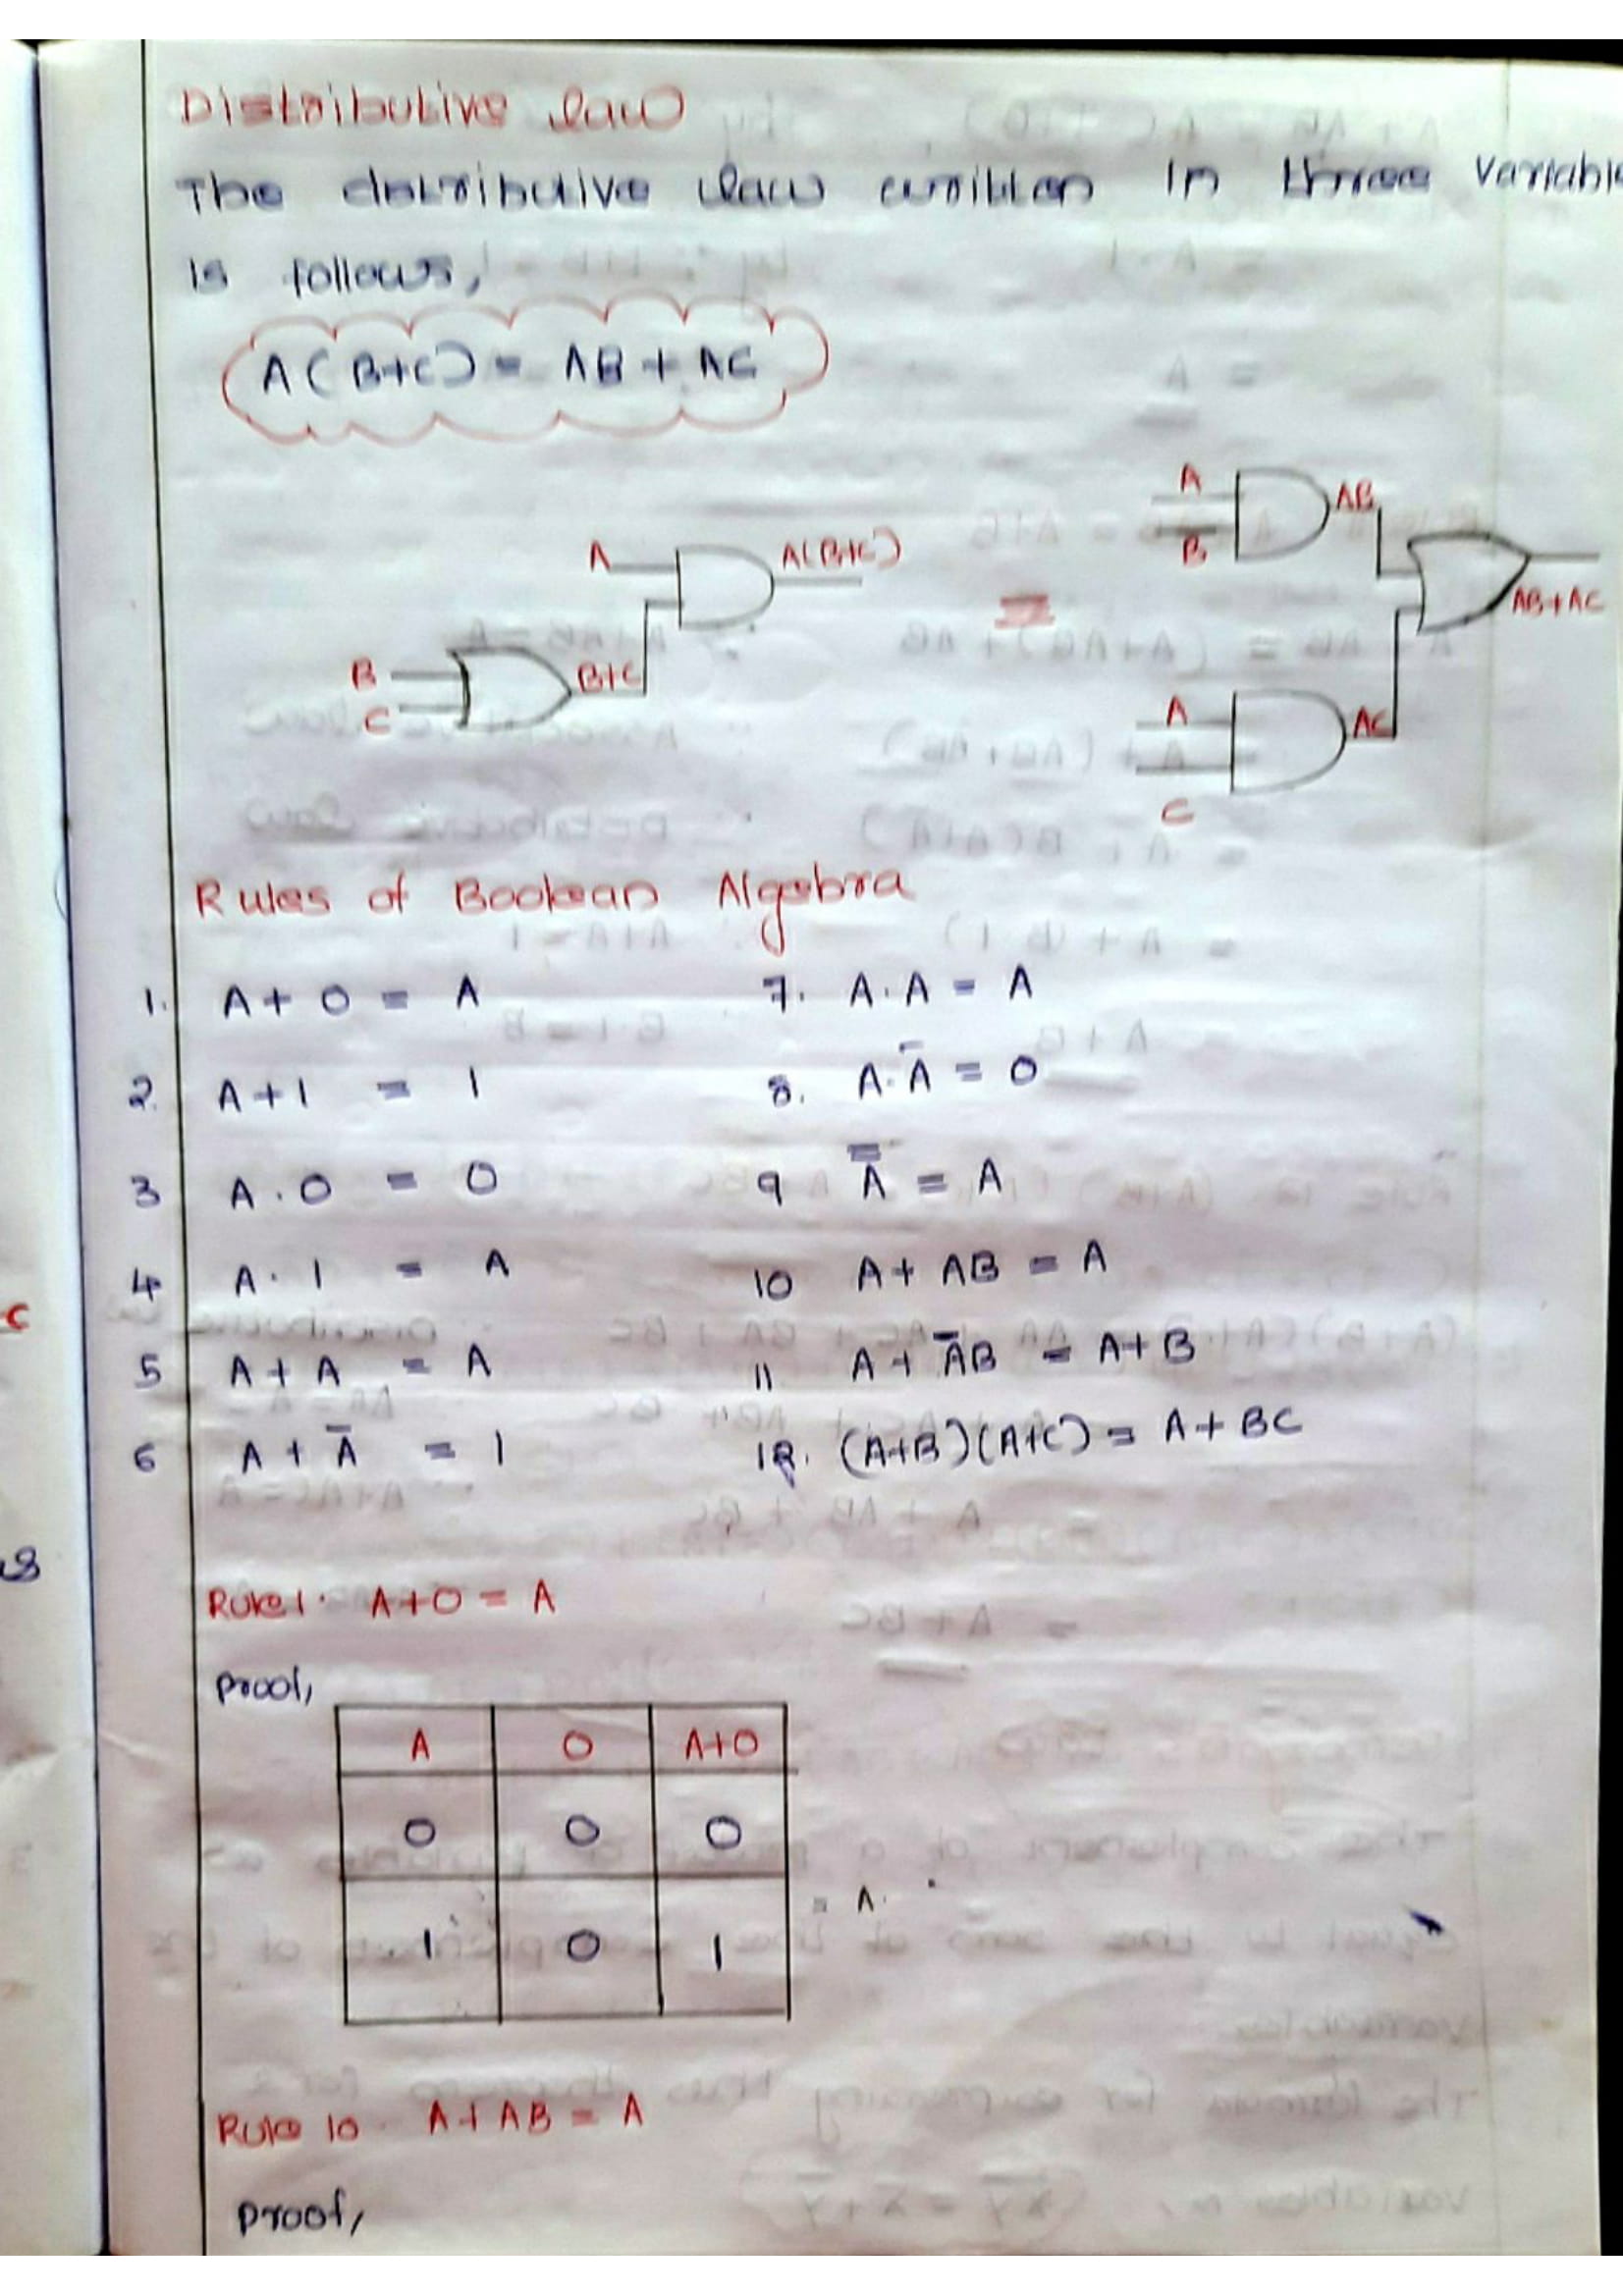 Distributive law
The distributive law written in three variable
is follows,
A(B+C) = AB + AC
A
A(B+C)
B
C
B+C
=
A
B
AB
AB+AC
A
C
AC
Rules of Boolean Algebra
1. A + 0 = A
2. A + 1 = 1
3 A . 0 = 0
4 A . 1 = A
5 A + A = A
6 A + A̅ = 1
7. A . A = A
8. A . A̅ = 0
9 A̿ = A
10 A + AB = A
11 A + A̅B = A + B
12. (A+B)(A+C) = A + BC
c
Rule 1. A+0 = A
Proof,
A 0 A+0
0 0 0
1 0 1
= A.
Rule 10. A+AB = A
Proof,